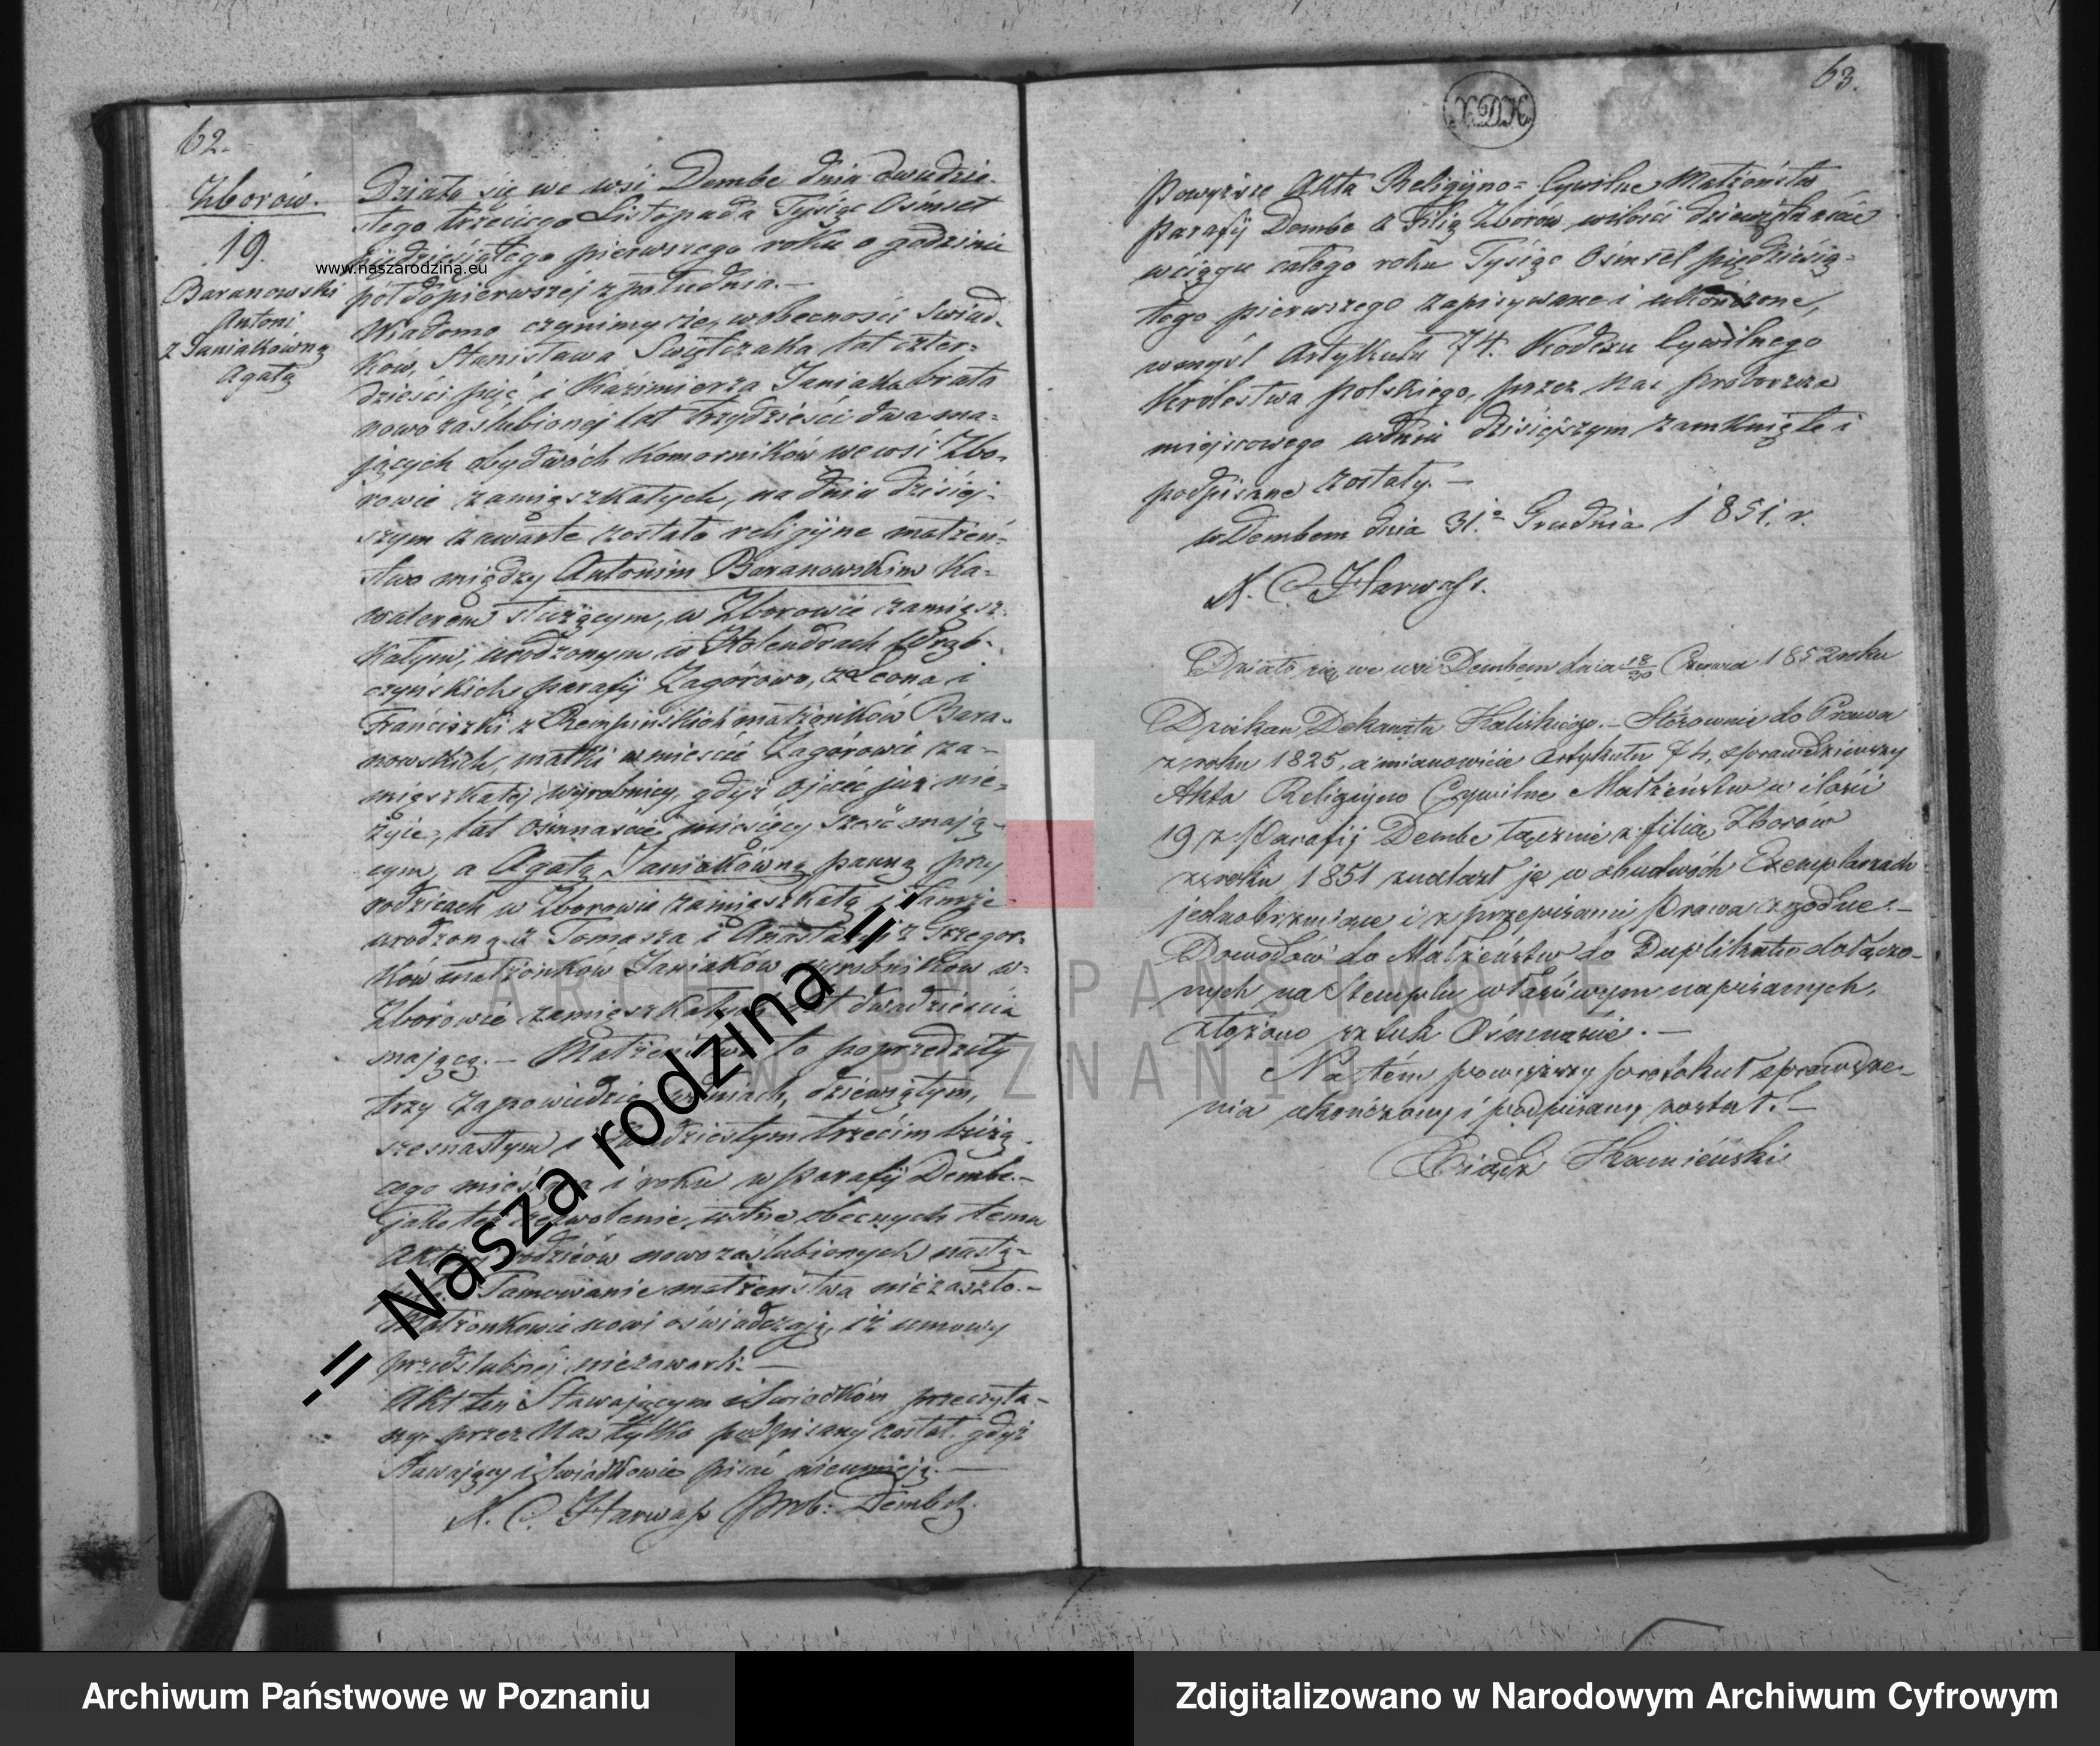 62.
Zborów.
19.
Baranowski
Antoni
z Janiakówną
Agatą
Działo się we wsi Dembe dnia dwudzie-
stego trzeciego Listopada Tysiąc Ośmset
piędziesiątego pierwszego roku o godzinie
www.naszarodzina.eu
pół dopierwszéj z południa.—
Wiadomo czynimy że, w obecności Świad-
ków, Stanisława Świętczaka lat czter-
dzieści pięć i Kaźimierza Janiaka brata
nowozaślubionej lat trzydzieści dwa ma-
jących obydwóch Komorników we wsi Zbo-
rowie zamięszkałych, na dniu dzisiej-
szym zawarte zostało religijne małżeń-
stwo między Antonim Baranowskim Ka-
walerem służącym, w Zborowie zamięsz-
kałym, urodzonym w Holendrach Wrąb-
czyńskich parafij Zagórowo, z Leona i
Franciszki z Rempińskich małżonków Bara-
nowskich, matki w mieście Zagórowie za-
mięszkałej wyrobnicy, gdyż ojciec już nie-
żyie, lat ośmnaście miesięcy sześć mają-
cym, a Agatą Janiakówną panną przy
rodzicach w Zborowie zamięszkałą i tamże
urodzoną z Tomasza i z Grzegor-
ków małżonkow Janiaków wyrobników w-
Zborowie zamięszkałych lat dwadzieścia
mającą.— Małżeństwo to poprzedziły
trzy zapowiedzie w dniach, dziewiątym,
szesnastym i dwudziestym trzecim bieżą-
cego miesiąca i roku w Parafij Dembe.—
jako też zezwolenie ustne obecnych temu
Aktowi rodziców nowozaślubionych nastą-
piło. Tamowanie małżeństwa niezaszło.—
Małżonkowie nowi oświadczają, iż umowy
przedślubnéj niezawarli.—
Akt ten Stawającym i Świadkom przeczyta-
ny przez Nas tylko podpisany został, gdyż
Stawający i Świadkowie pisać nieumieją.—
X. C. Harwas Prob: Dembsk.
-= Nasza rodzina =-
63.
X.D.K.
Powyższe Akta Religijno=Cywilne Małżeństw
parafij Dembe z Filią Zborów w ilości dziewiętnaście
w ciągu całego roku Tysiąc Ośmset pięćdziesią-
tego pierwszego zapisywane i ukończone,
w myśl Artykułu 74. Kodexu Cywilnego
Królestwa Polskiego, przez nas proboszcza
miejscowego w dniu dzisiejszym zamknięte i
podpisane zostały.—
w Dembem dnia 31.º Grudnia 1851. r.
X. C. Harwas.
Działo się we wsi Dembem dnia 18/30 Czerwca 1852 roku
Dziekan Dekanatu Kaliskiego.— Stósownie do Prawa
z roku 1825, a mianowicie Artykułu 74, sprawdziwszy
Akta Religijno Cywilne Małżeństw w ilości
19 z Parafij Dembe łącznie z filią Zborów
z roku 1851 znalazł je w obudwóch Exemplarzach
jednobrzmiące i z przepisami Prawa zgodne.—
Dowodów do Małżeństw do Duplikatu dołączo-
nych na Stemplu właściwym napisanych,
złożono sztuk Ośmnaście.—
Na tém powyższy protokuł sprawdze-
nia ukończony i podpisany został.—
Xiądz Kamieński
ARCHIWUM PAŃSTWOWE
W POZNANIU
Archiwum Państwowe w Poznaniu
Zdigitalizowano w Narodowym Archiwum Cyfrowym